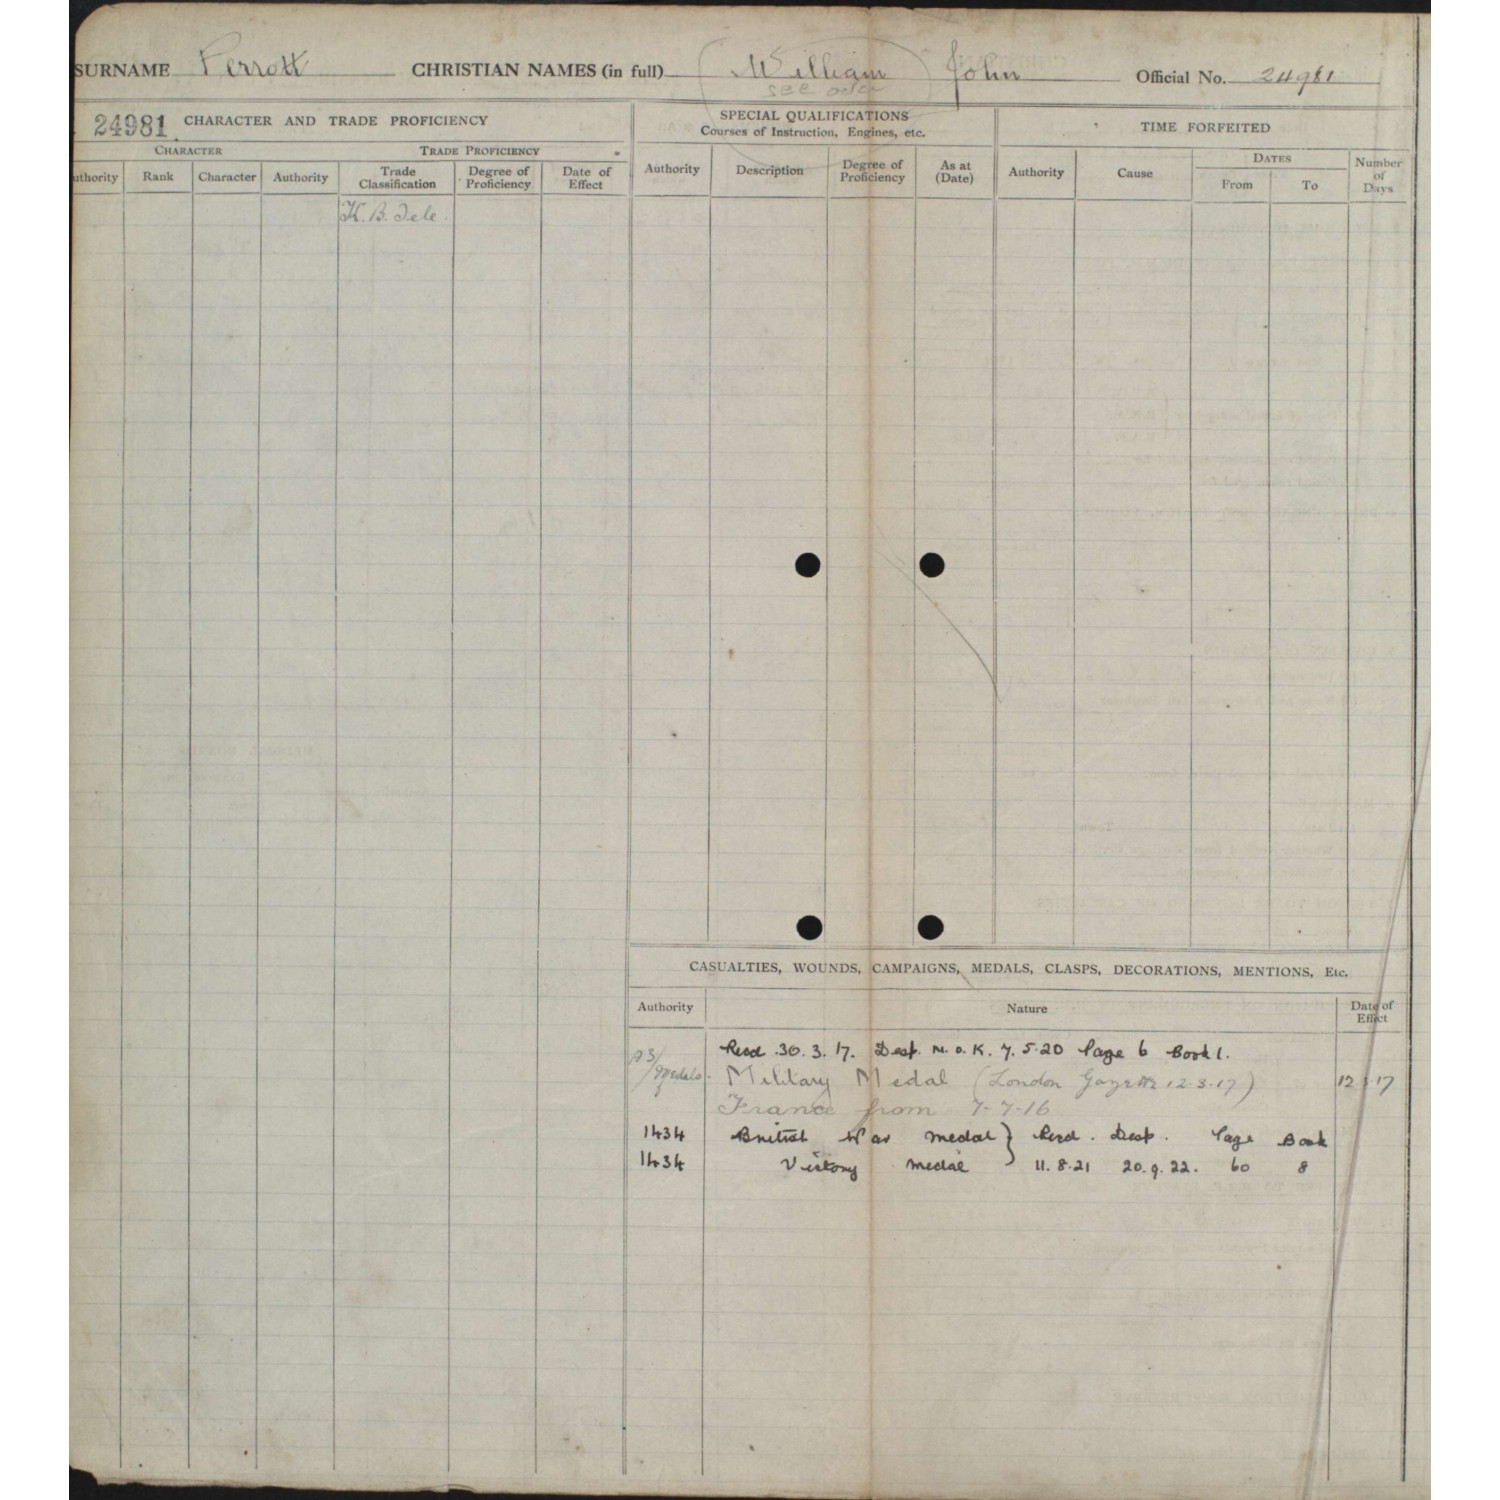 SURNAME Perrott CHRISTIAN NAMES (in full) William John Official No. 24981
see
24981 CHARACTER AND TRADE PROFICIENCY
CHARACTER TRADE PROFICIENCY
uthority Rank Character Authority Trade Classification Degree of Proficiency Date of Effect
K. B. Tele.
SPECIAL QUALIFICATIONS
Courses of Instruction, Engines, etc.
Authority Description Degree of Proficiency As at (Date)
TIME FORFEITED
Authority Cause DATES From To Number of Days
CASUALTIES, WOUNDS, CAMPAIGNS, MEDALS, CLASPS, DECORATIONS, MENTIONS, Etc.
Authority Nature Date of Effect
Recd 30.3.17. Desp. N.o.K. 7.5.20 Page 6 Book 1.
A3/Medals. Military Medal (London Gazette 12.3.17) 12.3.17
France from 7-7-16
1434 British War medal } Recd. Desp. Page Book
1434 Victory medal 11.8.21 20.9.22. 60 8